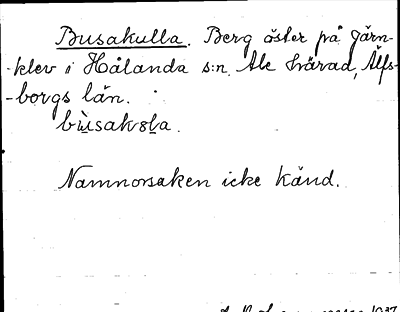 Busakulla. Berg öster på Järn-
-klev i Hålanda s:n. Ale härad, Älfs-
-borgs län.
Namnorsaken icke känd.
1937